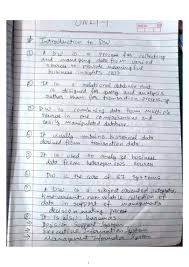 UNIT-1
# Introduction to DW
① A DW is a process for collecting
and managing data from varied
sources to provide meaningful
business insights (BI)
② It is a relational database that
is designed for query and analysis
rather than for transaction processing
③ DW is combining data from multiple
sources in one comprehensive and
easily manipulated database.
④ It usually contains historical data
derived from transaction data
⑤ It is used to analyze business
data from heterogeneous sources
⑥ DW is the core of BI systems
⑦ A DW is a subject oriented integrated
time variant, non volatile collection of
data in support of management's
decision making process
Decision Support System
Executive Information System
Management Information System